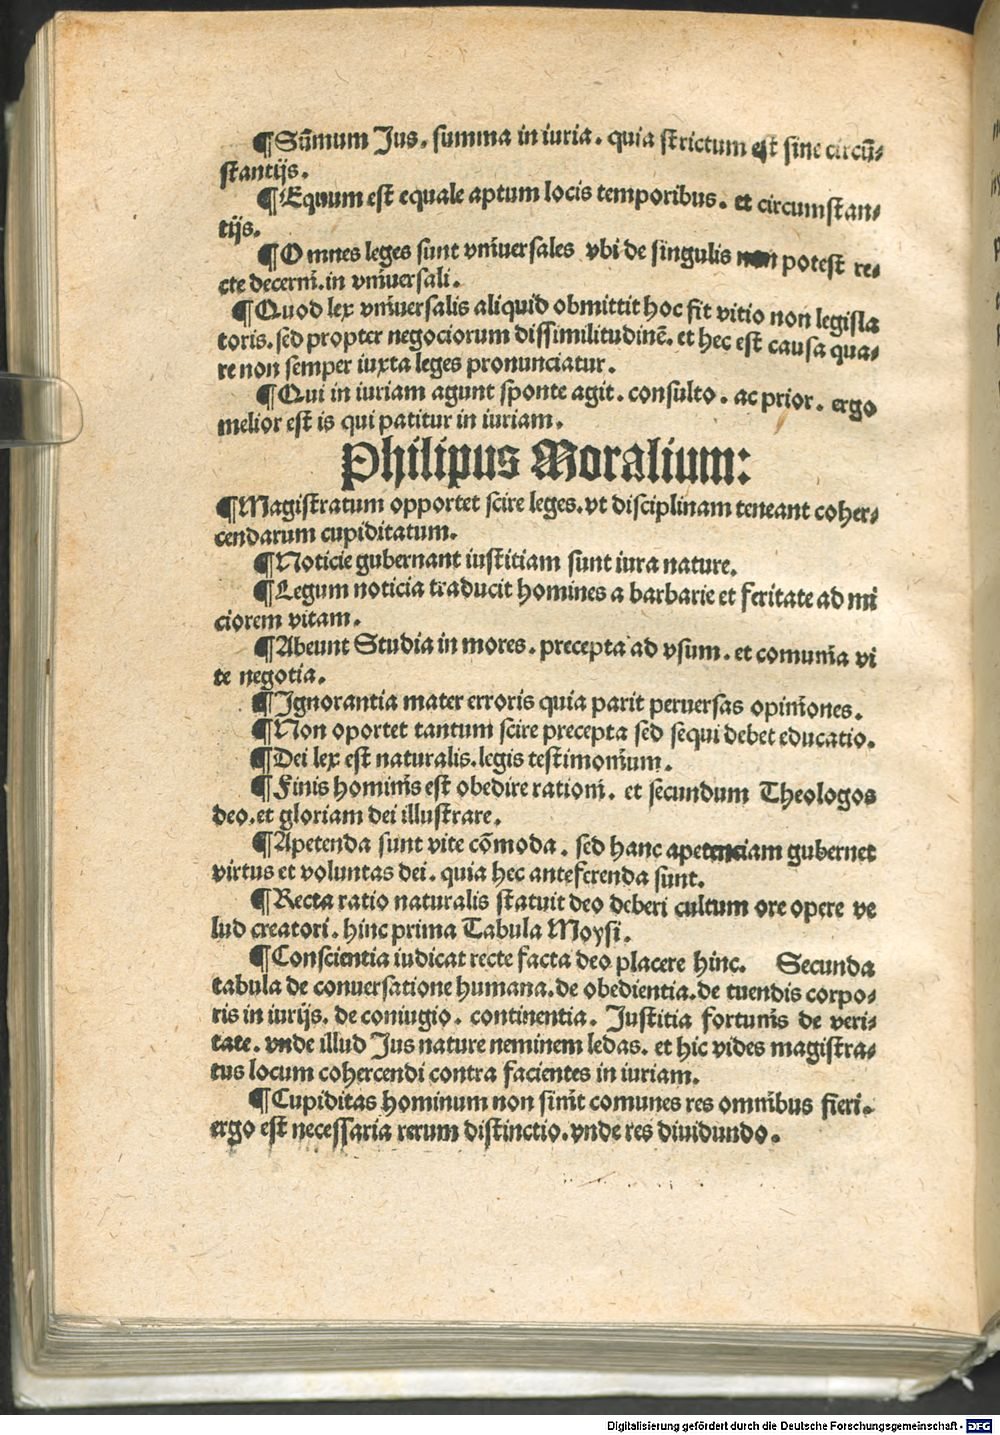 ¶Sūmum Jus. summa in iuria. quia strictum est sine circū⸗
stantijs.
¶Equum est equale aptum locis temporibus. et circumstan⸗
tijs.
¶Omnes leges sunt vniuersales vbi de singulis non potest re⸗
cte decerni. in vniuersali.
¶Quod lex vniuersalis aliquid obmittit hoc fit vitio non legisla
toris. sed propter negociorum dissimilitudinē. et hec est causa qua⸗
re non semper iuxta leges pronunciatur.
¶Qui in iuriam agunt sponte agit. consulto. ac prior. ergo
melior est is qui patitur in iuriam.
Philipus Moralium:
¶Magistratum opportet scire leges. vt disciplinam teneant coher⸗
cendarum cupiditatum.
¶Noticie gubernant iustitiam sunt iura nature.
¶Legum noticia traducit homines a barbarie et feritate ad mi
ciorem vitam.
¶Abeunt Studia in mores. precepta ad vsum. et comunia vi
te negotia.
¶Ignorantia mater erroris quia parit peruersas opiniones.
¶Non oportet tantum scire precepta sed sequi debet educatio.
¶Dei lex est naturalis. legis testimonium.
¶Finis hominis est obedire rationi. et secundum Theologos
deo. et gloriam dei illustrare.
¶Apetenda sunt vite cōmoda. sed hanc apetenciam gubernet
virtus et voluntas dei. quia hec anteferenda sunt.
¶Recta ratio naturalis statuit deo deberi cultum ore opere ve
lud creatori. hinc prima Tabula Moysi.
¶Conscientia iudicat recte facta deo placere hinc. Secunda
tabula de conuersatione humana. de obedientia. de tuendis corpo⸗
ris in iurijs. de coniugio. continentia. Justitia fortunis de veri⸗
tate. vnde illud Jus nature neminem ledas. et hic vides magistra⸗
tus locum cohercendi contra facientes in iuriam.
¶Cupiditas hominum non sinit comunes res omnibus fieri.
ergo est necessaria rerum distinctio. vnde res diuidundo.
Digitalisierung gefördert durch die Deutsche Forschungsgemeinschaft - DFG